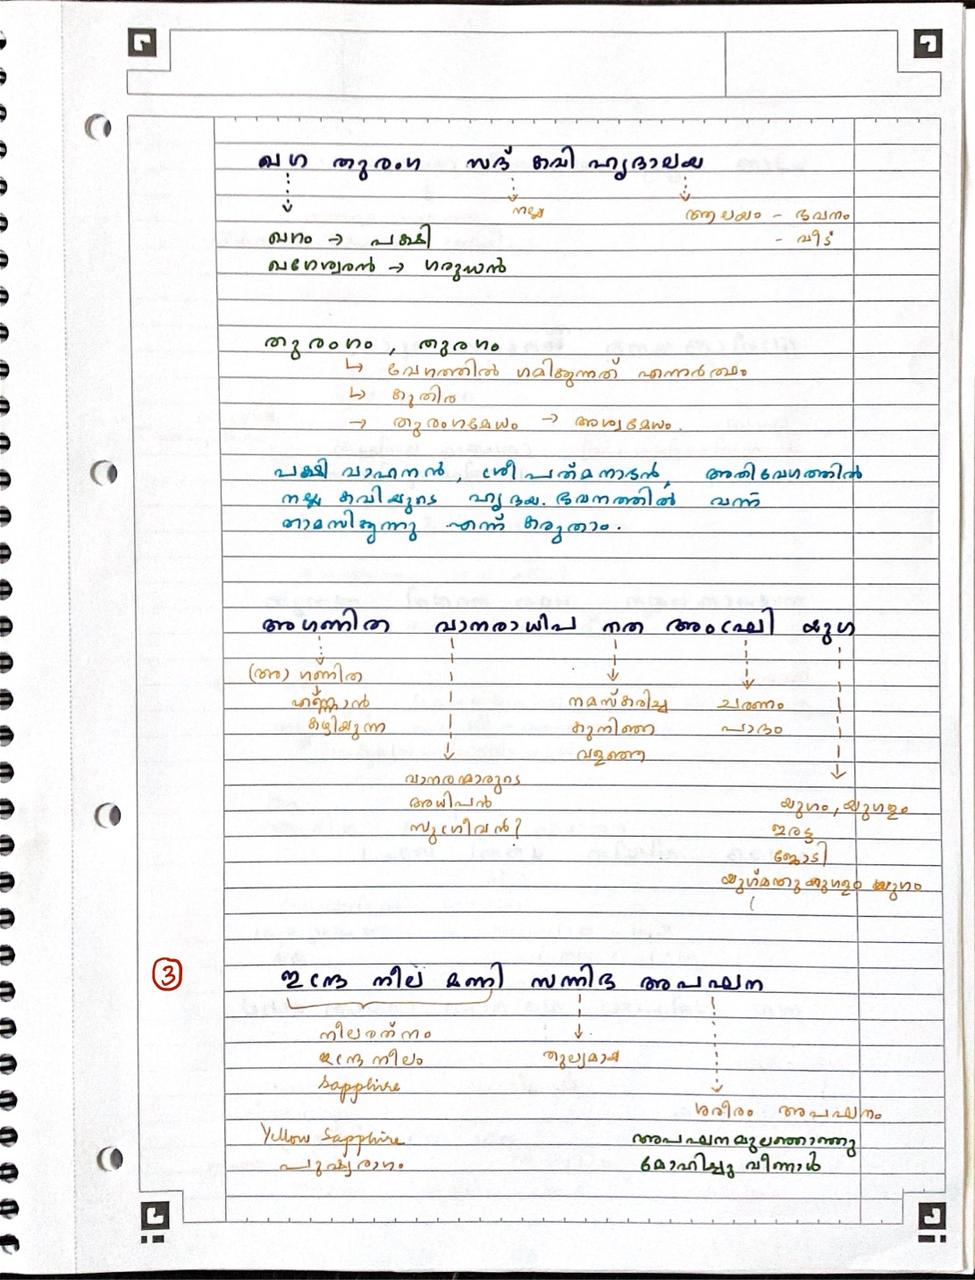 ഖഗ തുരംഗ സദ് കവി ഹൃദാലയ
നല്ല ആലയം - ഭവനം
- വീട്
ഖഗം → പക്ഷി
ഖഗേശ്വരൻ → ഗരുഡൻ
തുരംഗം , തുരഗം
↳ വേഗത്തിൽ ഗമിക്കുന്നത് എന്നർത്ഥം
↳ കുതിര
→ തുരംഗമേധം → അശ്വമേധം.
പക്ഷി വാഹനൻ, ശ്രീ പത്മനാഭൻ, അതിവേഗത്തിൽ
നല്ല കവിയുടെ ഹൃദയ. ഭവനത്തിൽ വന്ന്
താമസിക്കുന്നു എന്ന് കരുതാം.
അഗണിത വാനരാധിപ നത അംഘ്രി യുഗ
(അ) ഗണിത
എണ്ണാൻ നമസ്കരിച്ച ചരണം
കഴിയുന്ന കുനിഞ്ഞ പാദം
വളഞ്ഞ
വാനരന്മാരുടെ
അധിപൻ യുഗം, യുഗളം
സുഗ്രീവൻ? ഇരട്ട
ജോടി
യുഗ്മന്തു യുഗളം യുഗം
③ ഇന്ദ്ര നീല മണി സന്നിഭ അപഘന
നീലരത്നം
ഇന്ദ്രനീലം തുല്യമായ
Sapphire
ശരീരം അപഘനം
Yellow Sapphire അപഘനമുലഞ്ഞാഞ്ഞു
പുഷ്യരാഗം മോഹിച്ചു വീന്നാൾ